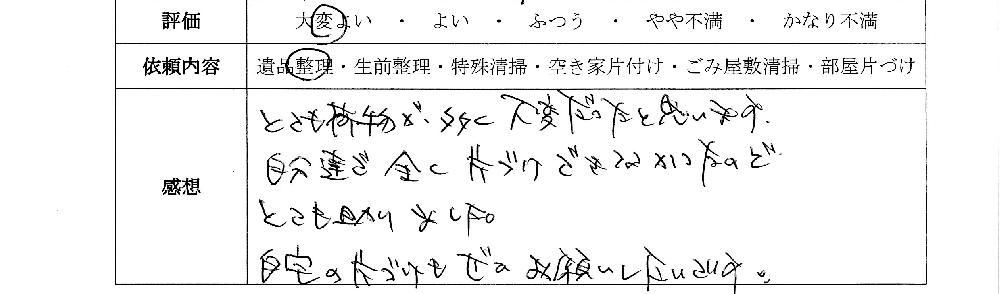 評価 大変よい ・ よい ・ ふつう ・ やや不満 ・ かなり不満
依頼内容 遺品整理・生前整理・特殊清掃・空き家片付け・ごみ屋敷清掃・部屋片づけ
感想
とても荷物が、多く大変だったと思います。
自分達で全く片づけできなかったので
とても助かりました。
自宅の片づけもぜひお願いしたいです。